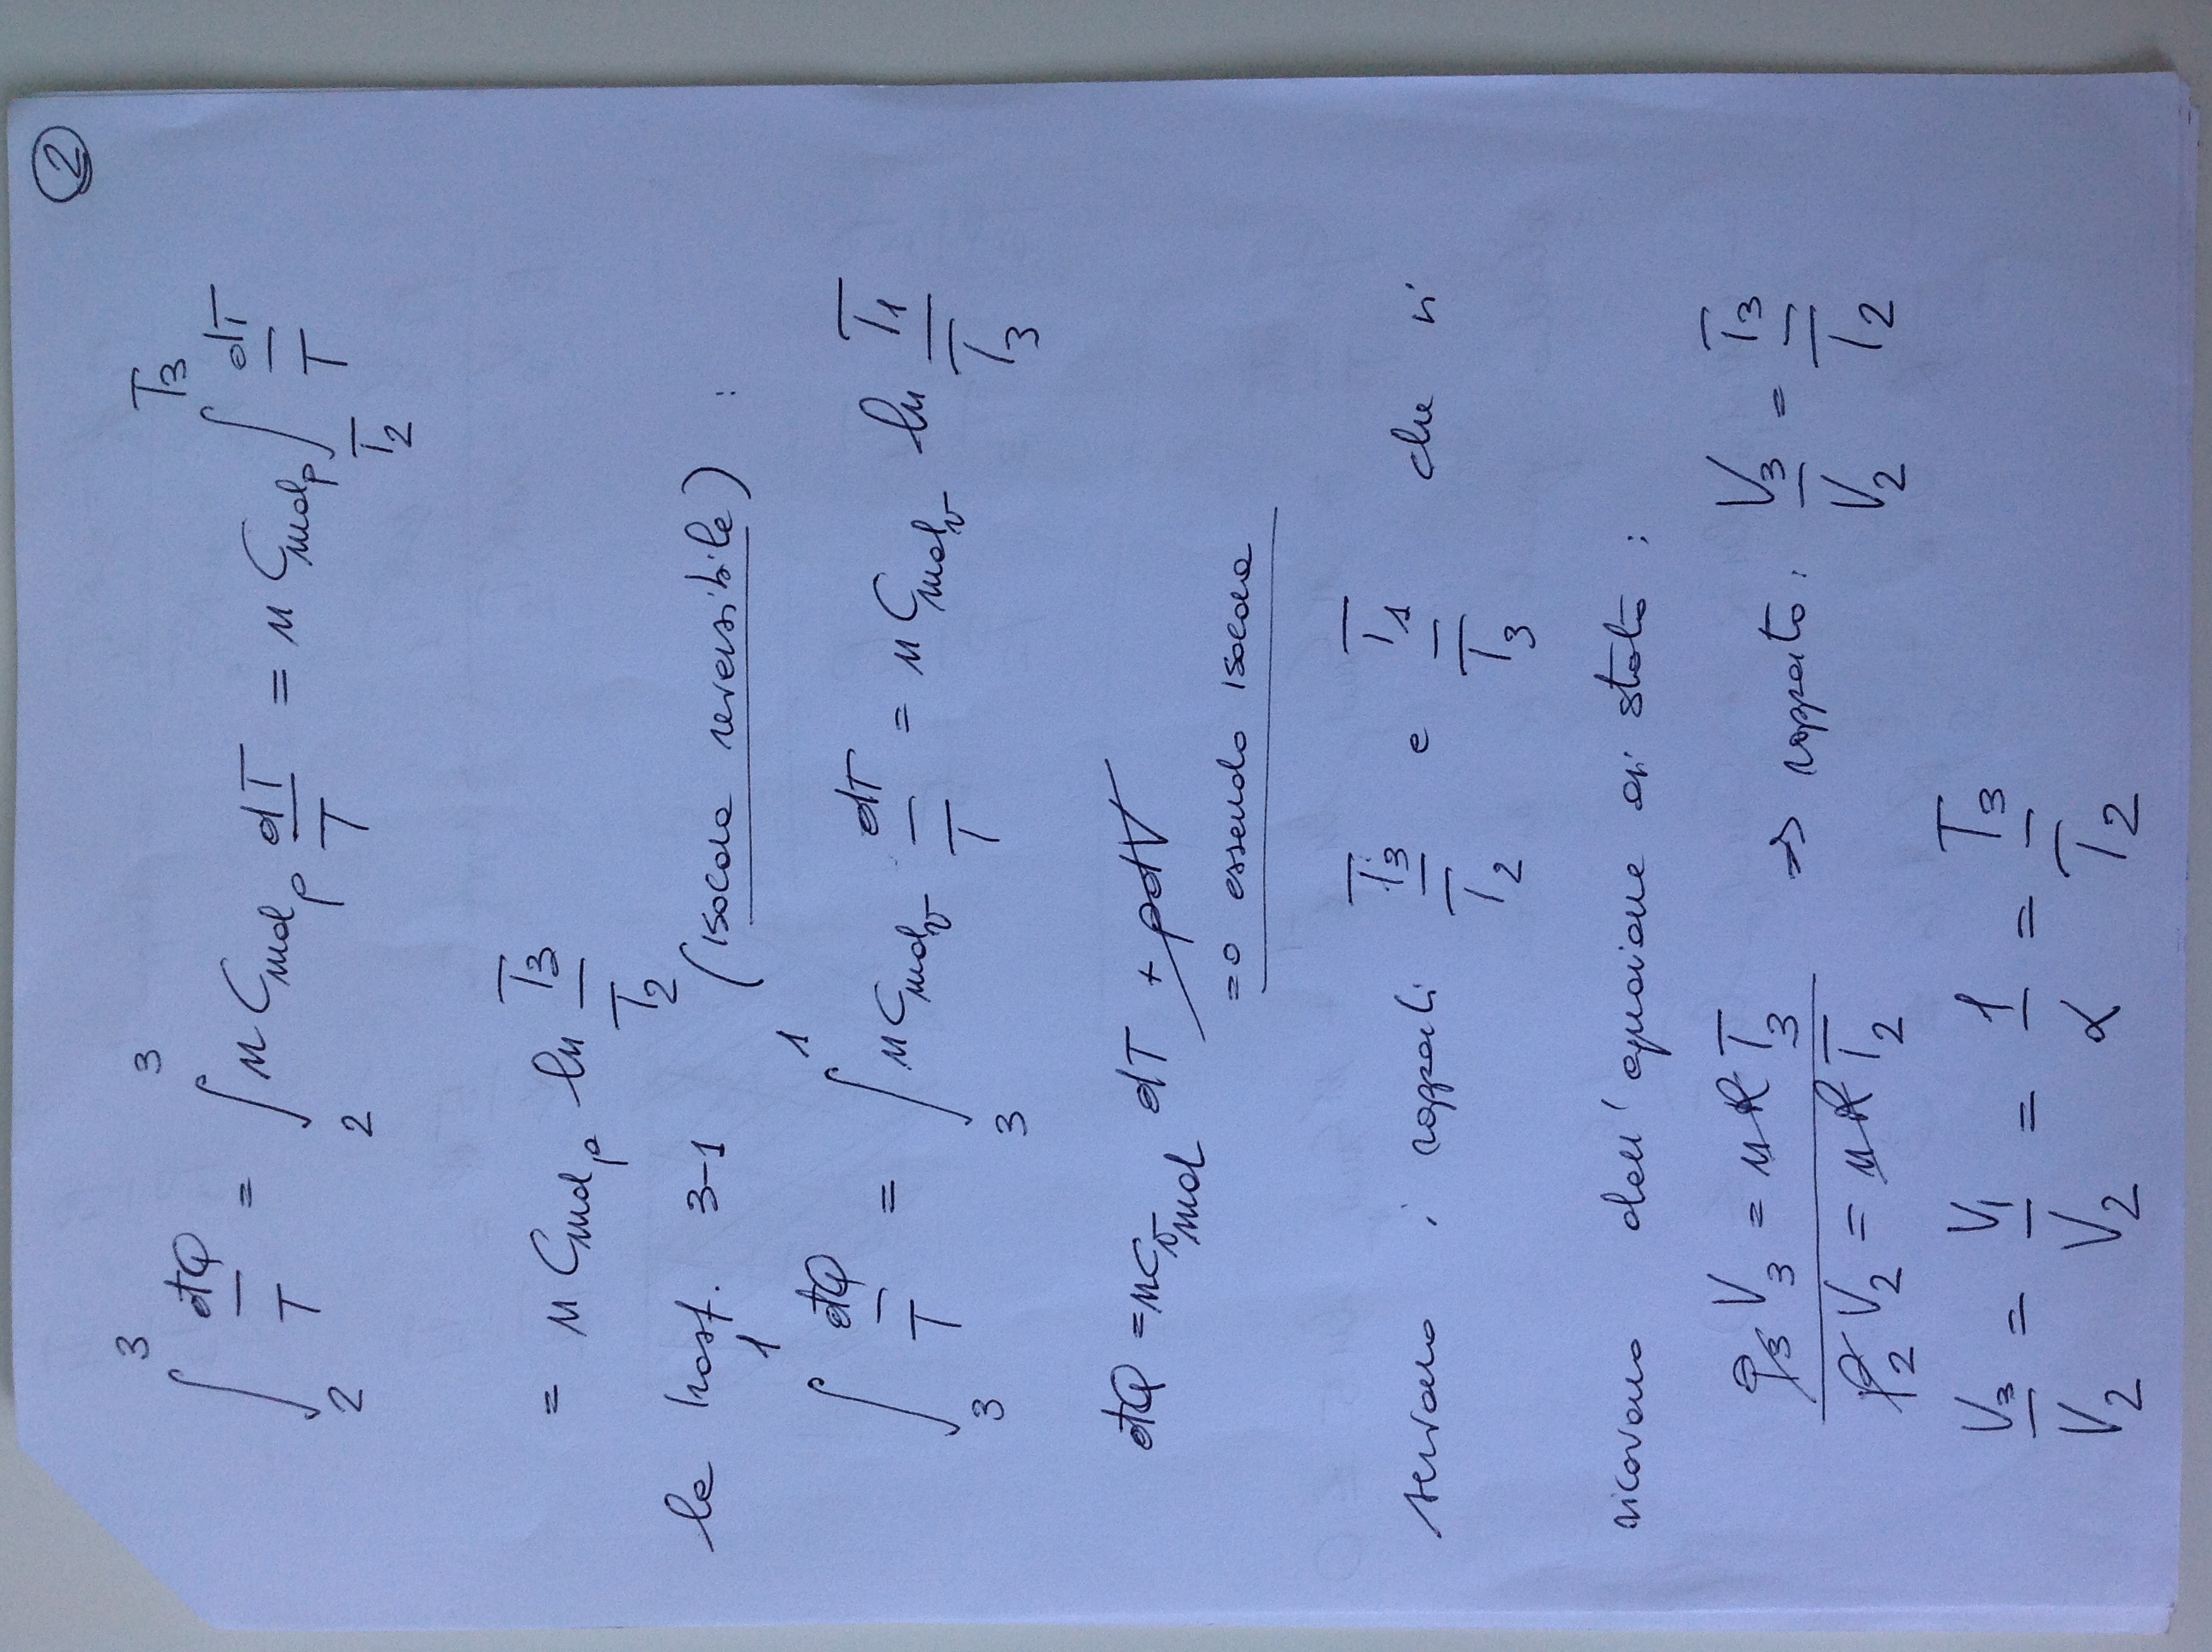 2
∫₂³ đQ/T = ∫₂³ n C_mol_p dT/T = n C_mol_p ∫_T₂^T₃ dT/T
= n C_mol_p ln T₃/T₂
la trasf. 3-1 (isocora reversibile) :
∫₃¹ đQ/T = ∫₃¹ n C_mol_v dT/T = n C_mol_v ln T₁/T₃
đQ = n c_v_mol dT + pdV
=0 essendo isocora
servono i rapporti T₃/T₂ e T₁/T₃ che si
ricavano dall'equazione di stato :
p₃ V₃ = n R T₃
p₂ V₂ = n R T₂ ⇒ rapporto : V₃/V₂ = T₃/T₂
V₃/V₂ = V₁/V₂ = 1/α = T₃/T₂